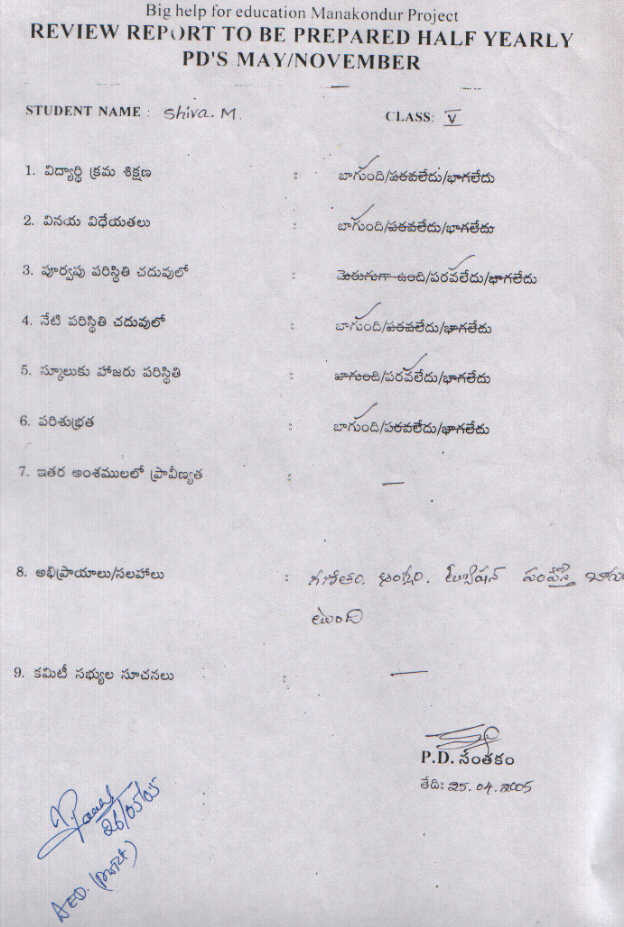 Big help for education Manakondur Project
REVIEW REPORT TO BE PREPARED HALF YEARLY
PD'S MAY/NOVEMBER
STUDENT NAME : Shiva. M. CLASS: V
1. విద్యార్థి క్రమ శిక్షణ : బాగుంది/పరవలేదు/భాగలేదు
2. వినయ విధేయతలు : బాగుంది/పరవలేదు/భాగలేదు
3. పూర్వపు పరిస్థితి చదువులో : మెరుగుగా ఉంది/పరవలేదు/భాగలేదు
4. నేటి పరిస్థితి చదువులో : బాగుంది/పరవలేదు/భాగలేదు
5. స్కూలుకు హాజరు పరిస్థితి : బాగుంది/పరవలేదు/భాగలేదు
6. పరిశుభ్రత : బాగుంది/పరవలేదు/భాగలేదు
7. ఇతర అంశములలో ప్రావీణ్యత : —
8. అభిప్రాయాలు/సలహాలు : గణితం. ట్యూషన్
టుంది
9. కమిటీ సభ్యుల సూచనలు : —
P.D. సంతకం
తేది: 25. 04. 2005
26/05/05
AEO.